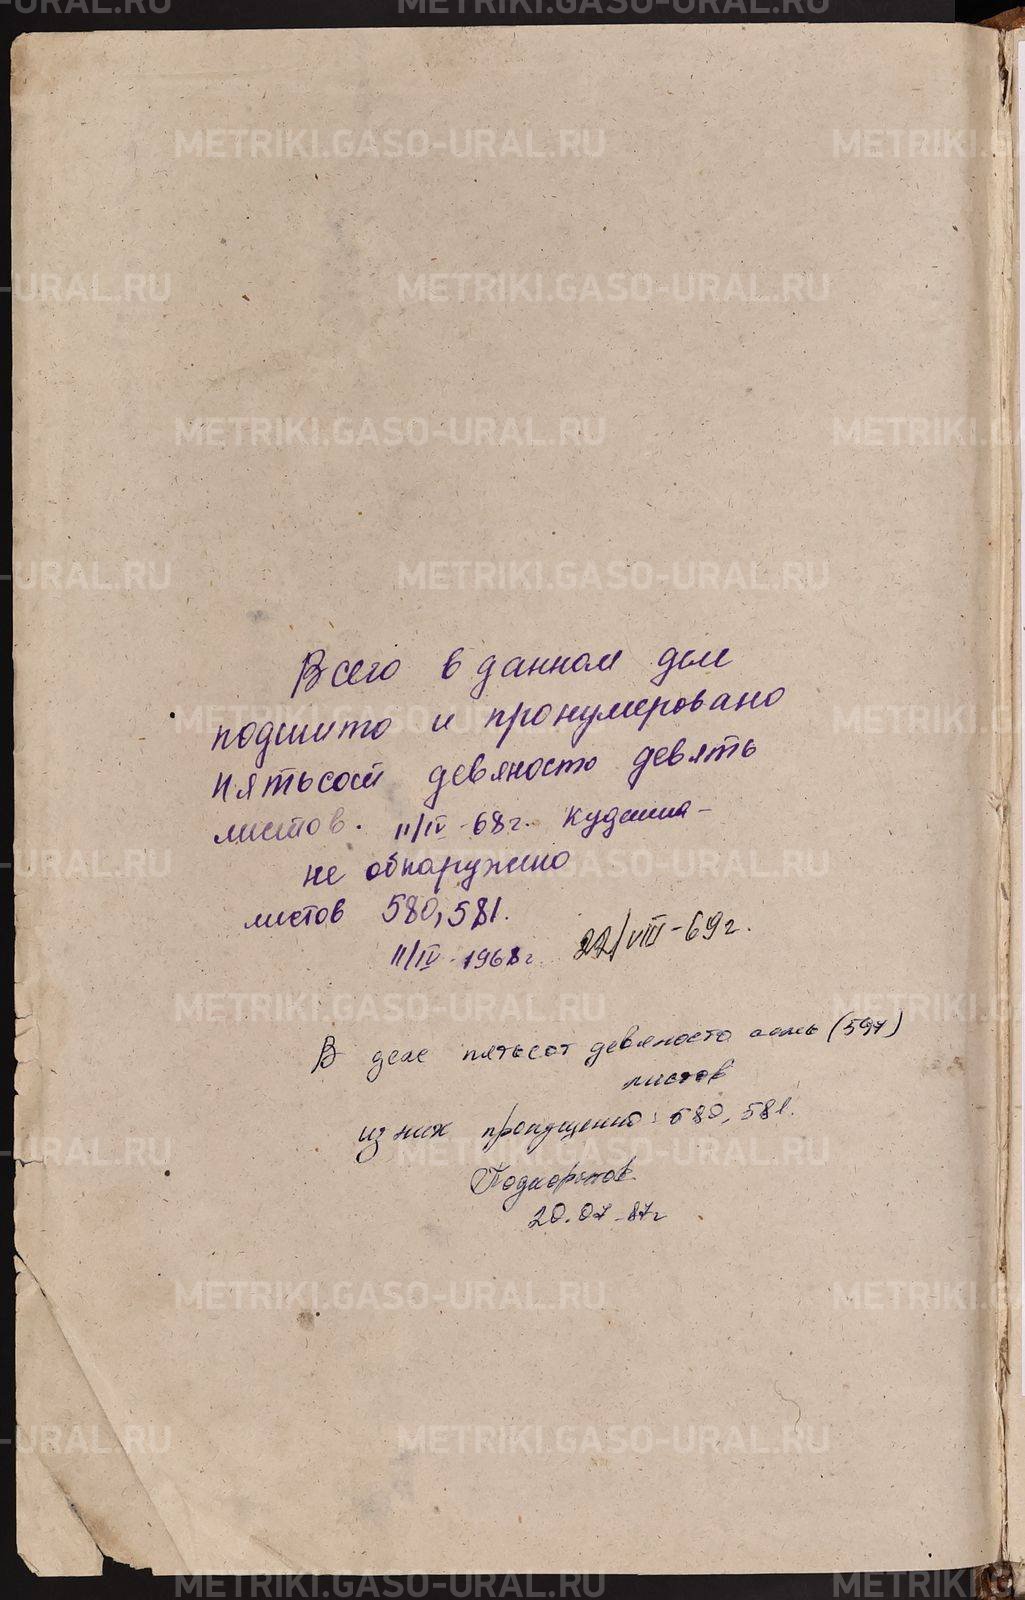 Всего в данном деле
подшито и пронумеровано
пятьсот девяносто девять
листов. 11/IV-68г.
не обнаружено
листов 580, 581.
11/IV-1968г. 22/VIII-69г.
В деле пятьсот девяносто семь (597)
листов
из них пропущенно: 580, 581.
20.07.87г
METRIKI.GASO-URAL.RU